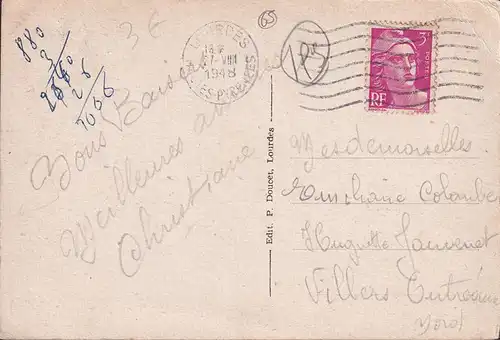 880
3
25
1056
3€
65
LOURDES
7-VIII
1948
PYRENEES
3F
RF
Bons Baisers
Meilleures
Christiane
Edit. P. Doucet, Lourdes
Mesdemoiselles
Colombe
Huguette Jauvenet
Villers Outréaux
Nord